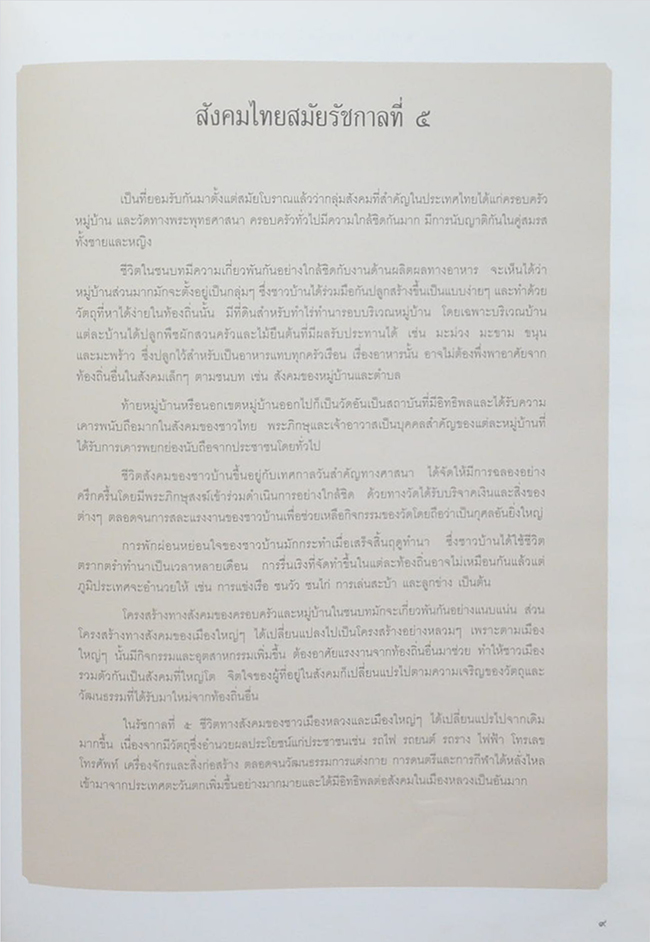 สังคมไทยสมัยรัชกาลที่ ๕
เป็นที่ยอมรับกันมาตั้งแต่สมัยโบราณแล้วว่ากลุ่มสังคมที่สำคัญในประเทศไทยได้แก่ครอบครัว
หมู่บ้าน และวัดทางพระพุทธศาสนา ครอบครัวทั่วไปมีความใกล้ชิดกันมาก มีการนับญาติกันในคู่สมรส
ทั้งชายและหญิง
ชีวิตในชนบทมีความเกี่ยวพันกันอย่างใกล้ชิดกับงานด้านผลิตผลทางอาหาร จะเห็นได้ว่า
หมู่บ้านส่วนมากมักจะตั้งอยู่เป็นกลุ่มๆ ซึ่งชาวบ้านได้ร่วมมือกันปลูกสร้างขึ้นเป็นแบบง่ายๆ และทำด้วย
วัตถุที่หาได้ง่ายในท้องถิ่นนั้น มีที่ดินสำหรับทำไร่ทำนารอบบริเวณหมู่บ้าน โดยเฉพาะบริเวณบ้าน
แต่ละบ้านได้ปลูกพืชผักสวนครัวและไม้ยืนต้นที่มีผลรับประทานได้ เช่น มะม่วง มะขาม ขนุน
และมะพร้าว ซึ่งปลูกไว้สำหรับเป็นอาหารแทบทุกครัวเรือน เรื่องอาหารนั้น อาจไม่ต้องพึ่งพาอาศัยจาก
ท้องถิ่นอื่นในสังคมเล็กๆ ตามชนบท เช่น สังคมของหมู่บ้านและตำบล
ท้ายหมู่บ้านหรือนอกเขตหมู่บ้านออกไปก็เป็นวัดอันเป็นสถาบันที่มีอิทธิพลและได้รับความ
เคารพนับถือมากในสังคมของชาวไทย พระภิกษุและเจ้าอาวาสเป็นบุคคลสำคัญของแต่ละหมู่บ้านที่
ได้รับการเคารพยกย่องนับถือจากประชาชนโดยทั่วไป
ชีวิตสังคมของชาวบ้านขึ้นอยู่กับเทศกาลวันสำคัญทางศาสนา ได้จัดให้มีการฉลองอย่าง
ครึกครื้นโดยมีพระภิกษุสงฆ์เข้าร่วมดำเนินการอย่างใกล้ชิด ด้วยทางวัดได้รับบริจาคเงินและสิ่งของ
ต่างๆ ตลอดจนการสละแรงงานของชาวบ้านเพื่อช่วยเหลือกิจกรรมของวัดโดยถือว่าเป็นกุศลอันยิ่งใหญ่
การพักผ่อนหย่อนใจของชาวบ้านมักกระทำเมื่อเสร็จสิ้นฤดูทำนา ซึ่งชาวบ้านได้ใช้ชีวิต
ตรากตรำทำนาเป็นเวลาหลายเดือน การรื่นเริงที่จัดทำขึ้นในแต่ละท้องถิ่นอาจไม่เหมือนกันแล้วแต่
ภูมิประเทศจะอำนวยให้ เช่น การแข่งเรือ ชนวัว ชนไก่ การเล่นสะบ้า และลูกช่วง เป็นต้น
โครงสร้างทางสังคมของครอบครัวและหมู่บ้านในชนบทมักจะเกี่ยวพันกันอย่างแนบแน่น ส่วน
โครงสร้างทางสังคมของเมืองใหญ่ๆ ได้เปลี่ยนแปลงไปเป็นโครงสร้างอย่างหลวมๆ เพราะตามเมือง
ใหญ่ๆ นั้นมีกิจกรรมและอุตสาหกรรมเพิ่มขึ้น ต้องอาศัยแรงงานจากท้องถิ่นอื่นมาช่วย ทำให้ชาวเมือง
รวมตัวกันเป็นสังคมที่ใหญ่โต จิตใจของผู้ที่อยู่ในสังคมก็เปลี่ยนแปรไปตามความเจริญของวัตถุและ
วัฒนธรรมที่ได้รับมาใหม่จากท้องถิ่นอื่น
ในรัชกาลที่ ๕ ชีวิตทางสังคมของชาวเมืองหลวงและเมืองใหญ่ๆ ได้เปลี่ยนแปรไปจากเดิม
มากขึ้น เนื่องจากมีวัตถุซึ่งอำนวยผลประโยชน์แก่ประชาชนเช่น รถไฟ รถยนต์ รถราง ไฟฟ้า โทรเลข
โทรศัพท์ เครื่องจักรและสิ่งก่อสร้าง ตลอดจนวัฒนธรรมการแต่งกาย การดนตรีและการกีฬาได้หลั่งไหล
เข้ามาจากประเทศตะวันตกเพิ่มขึ้นอย่างมากมายและได้มีอิทธิพลต่อสังคมในเมืองหลวงเป็นอันมาก
๙